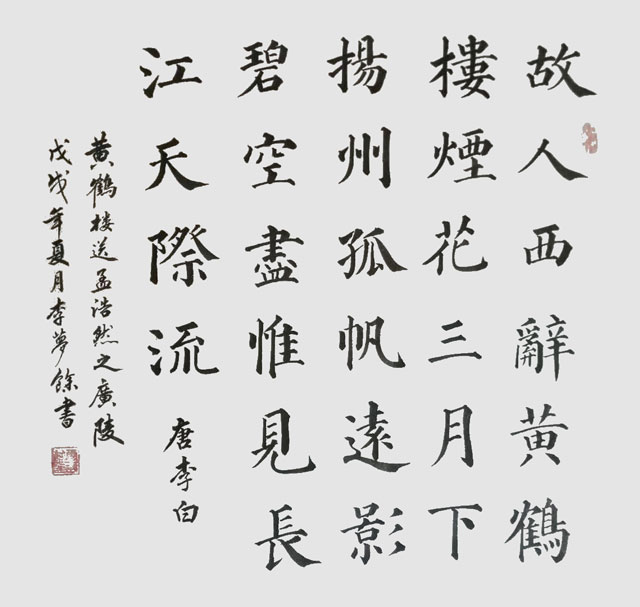 故人西辭黄鶴
樓煙花三月下
揚州孤帆遠影
碧空盡惟見長
江天際流
唐李白
黄鶴楼送孟浩然之廣陵
戊戌年夏月李夢餘書